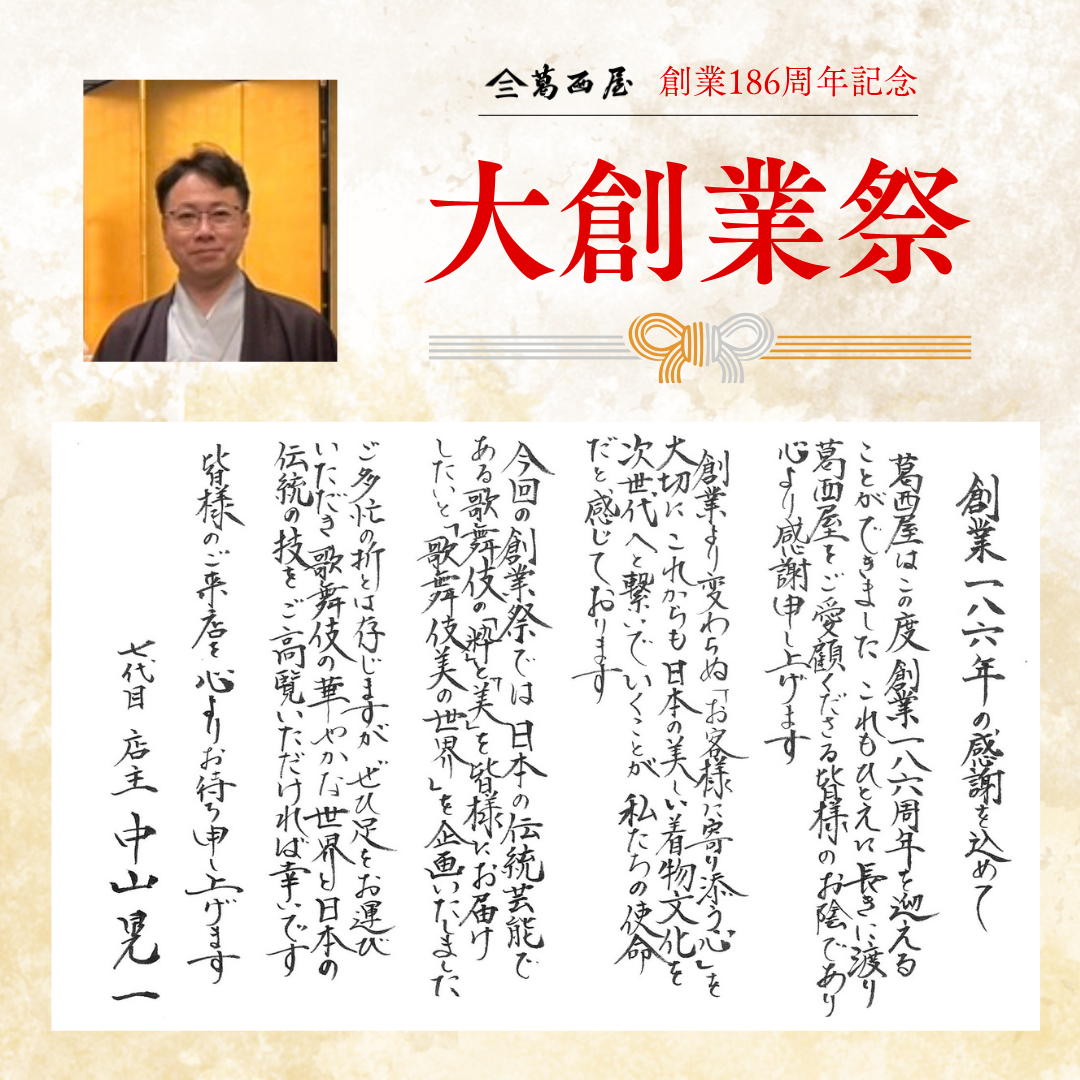 葛西屋 創業186周年記念
大創業祭
創業一八六年の感謝を込めて
葛西屋はこの度 創業一八六周年を迎える
ことができました これもひとえに長きに渡り
葛西屋をご愛顧くださる皆様のお陰であり
心より感謝申し上げます
創業より変わらぬ「お客様に寄り添う心」を
大切に これからも日本の美しい着物文化を
次世代へと繋いでいくことが 私たちの使命
だと感じております
今回の創業祭では 日本の伝統芸能で
ある歌舞伎の「粋」と「美」を皆様にお届け
したいと「歌舞伎美の世界」を企画いたしました
ご多忙の折とは存じますが ぜひ足をお運び
いただき 歌舞伎の華やかな世界と日本の
伝統の技をご高覧いただければ幸いです
皆様のご来店を 心よりお待ち申し上げます
七代目 店主 中山晃一